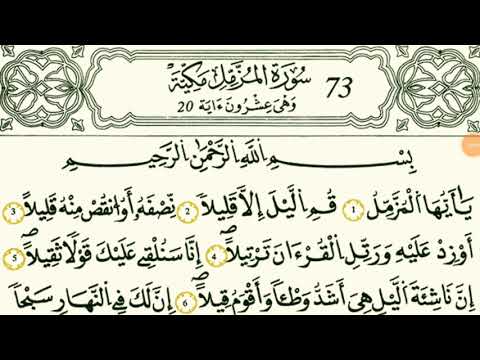 سُورَةُ الْمُزَّمِّلِ مَكِّيَّةٌ 73
وَهْيَ عِشْرُونَ ءَايَة 20
بِسْمِ اللَّهِ الرَّحْمَٰنِ الرَّحِيمِ
يَا أَيُّهَا الْمُزَّمِّلُ 1 قُمِ الَّيْلَ إِلَّا قَلِيلًا 2 نِّصْفَهُ أَوُ انقُصْ مِنْهُ قَلِيلًا 3
أَوْ زِدْ عَلَيْهِ وَرَتِّلِ الْقُرْءَانَ تَرْتِيلًا 4 إِنَّا سَنُلْقِي عَلَيْكَ قَوْلًا ثَقِيلًا 5
إِنَّ نَاشِئَةَ الَّيْلِ هِيَ أَشَدُّ وَطْـًٔا وَأَقْوَمُ قِيلًا 6 إِنَّ لَكَ فِي النَّهَارِ سَبْحًا